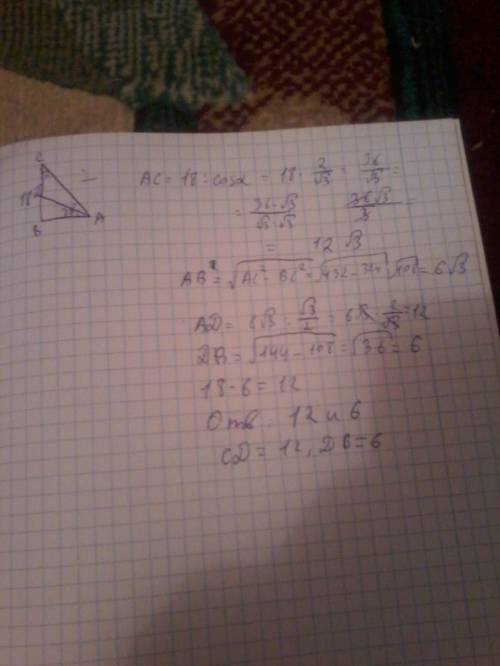 C
18
B
A
AC = 18 : cosα = 18 · 2/√3 = 36/√3 =
= 36·√3/√3·√3 36√3/3 =
= 12√3
AB² = √AC² - BC² = √432 - 324 = √108 = 6√3
AD = 6√3 : √3/2 = 6√3 · 2/√3 = 12
DB = √144 - 108 = √36 = 6
18 - 6 = 12
Отв: 12 и 6
CD = 12, DB = 6